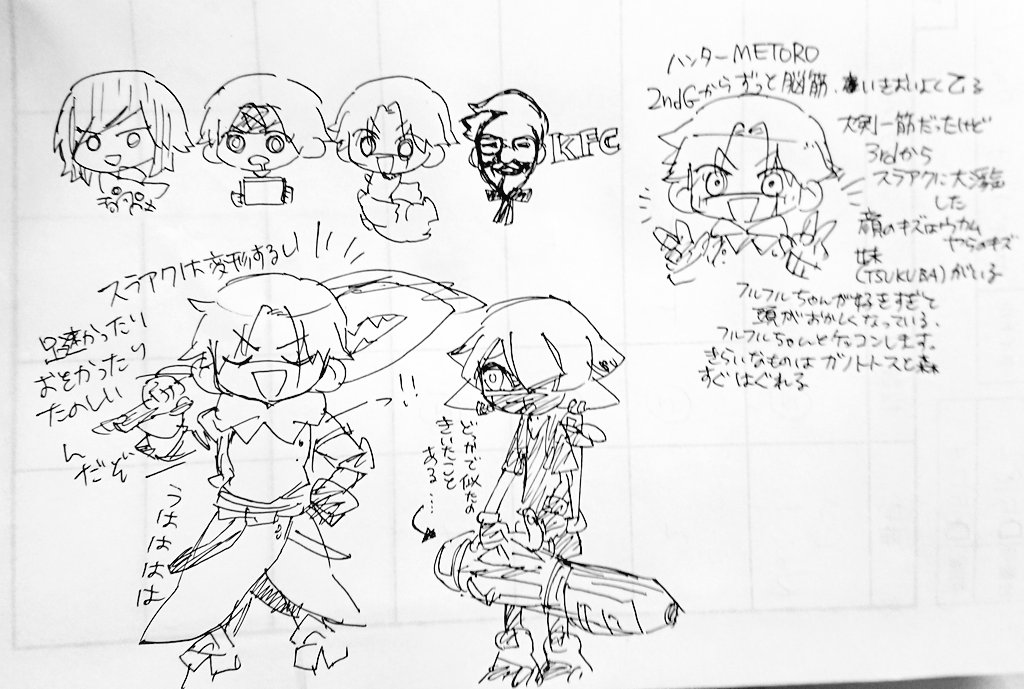 ハンターMETORO
2ndGからずっと脳筋、いきおいよく乙る
大剣一筋だったけど
3rdから
スラアクに大浮気
した
顔のキズはウカム
やらのキズ
妹
(TSUKUBA)がいる
フルフルちゃんが好きすぎて
頭がおかしくなっている、
フルフルちゃんとケッコンします。
きらいなものは ガノトトスと森
すぐはぐれる
KFC
スラアクは変形するし
足速かったり
おそかったり
たのしい
んだぞ
っ!!
うはははは
どっかで似たの
きいたこと
ある……